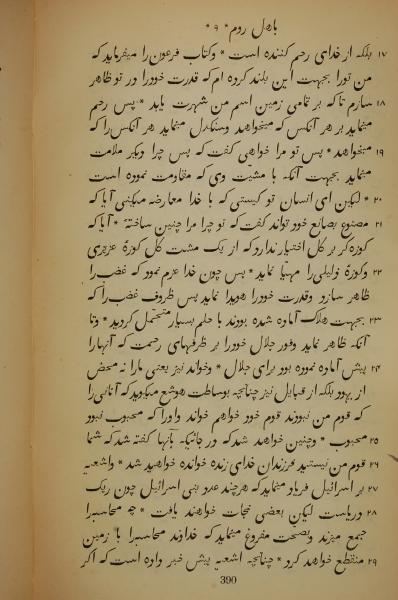 باهل روم * ۹ *
۱۷ بلکه از خدای رحم کننده است * وکتاب فرعون را میفرماید که
من تورا بجهت این بلند کرده ام که قدرت خودرا در تو ظاهر
۱۸ سازم تا که بر تمامی زمین اسم من شهرت یابد * پس رحم
مینماید بر هر آنکس که میخواهد وسنکدل مینماید هر آنکس را که
۱۹ میخواهد * پس تو مرا خواهی کفت که پس چرا دیکر ملامت
مینماید بجهت آنکه با مشیّت وی که مقاومت نموده است
۲۰ * لیکن ای انسان تو کیستی که با خدا معارضه میکنی آیا که
۲۱ مصنوع بصانع خود تواند کفت که تو چرا مرا چنین ساختهٔ * آیا که
کوزه کر بر کل اختیار ندارد که از یک مشت کل کوزهٔ عزیزی
۲۲ وکوزهٔ ذلیلی را مهیّا نماید * پس چون خدا عزم نمود که غضب را
ظاهر سازد وقدرت خودرا هویدا نماید پس ظروف غضب را که
۲۳ بجهت هلاک آماده شده بودند با حلم بسیار متحمل کردید * وتا
آنکه ظاهر نماید وفور جلال خودرا بر ظرفهای رحمت که آنهارا
۲۴ پیش آماده نموده بود برای جلال * وخواند نیز یعنی مارا نه محض
از یهود بلکه از قبایل نیز چنانچه بوساطت هوشع میکوید که آنانی را
که قوم من نبودند قوم خود خواهم خواند واورا که محبوب نبود
۲۵ محبوب * وچنین خواهد شد که در جائیکه بآنها کفته شد که شما
۲۶ قوم من نیستید فرزندان خدای زنده خوانده خواهید شد * واشعیه
۲۷ بر اسرائیل فریاد مینماید که هرچند عدد بنی اسرائیل چون ریک
۲۸ دریاست لیکن بعضی نجات خواهند یافت * چه محاسبرا
جمع میزند وبصحت مفروغ مینماید که خداوند محاسبرا با زمین
۲۹ منقطع خواهد کرد * چنانچه اشعیه پیش خبر داده است که اکر
390